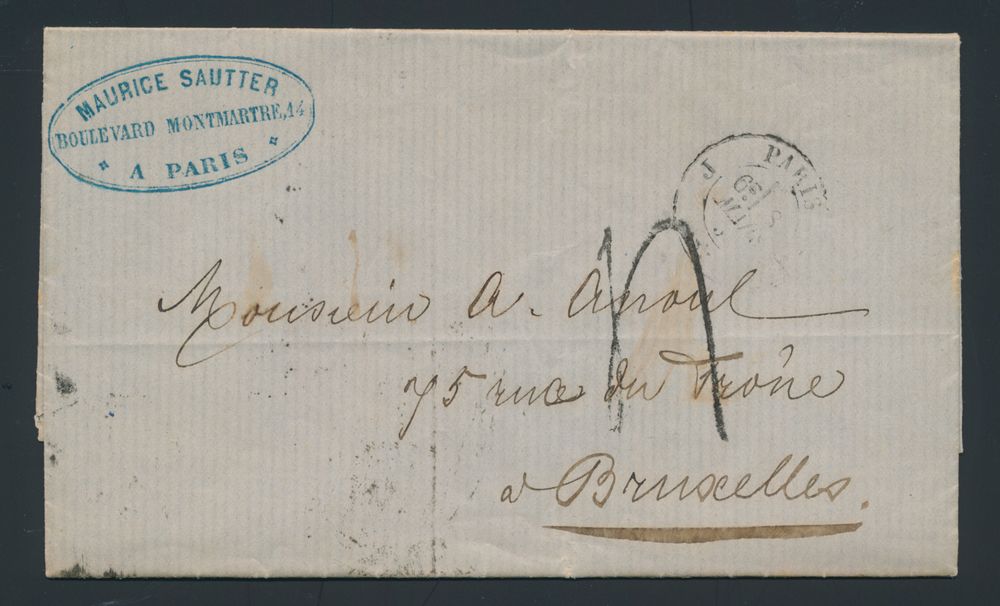 MAURICE SAUTTER
BOULEVARD MONTMARTRE, 14
A PARIS
J PARIS
69
Monsieur A. Anoul
75 rue du Trône
à Bruxelles.